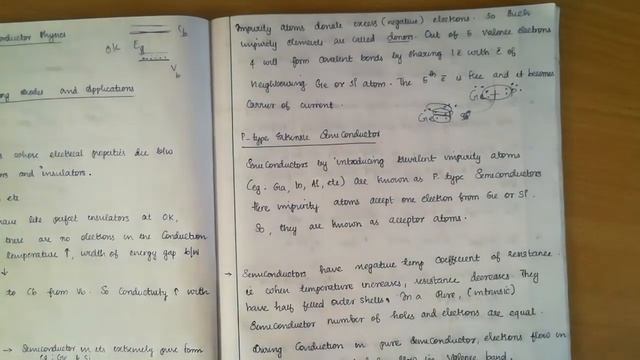 onductor Physics
Cb
0K Eg
Vb
ng diodes and Applications
s whose electrical properties lie b/w
ors and insulators.
etc
have like perfect insulators at 0K,
there are no electrons in the Conduction
temperature ↑, width of energy gap b/w
↓
to Cb from Vb. So Conductivity ↑ with
→ Semiconductor in its extremely pure form
Impurity atoms donate excess (negative) electrons. So such
impurity elements are called donors. Out of 5 valence electrons
4 will form covalent bonds by sharing 1e with e of
neighbouring Ge or Si atom. The 5th e is free and it becomes
carrier of current.
Ge
Ge
P-type Extrinsic Semiconductor
Semiconductors by introducing trivalent impurity atoms
(eg: Ga, In, Al, etc) are known as P-type Semiconductors
Here impurity atoms accept one electron from Ge or Si.
So, they are known as acceptor atoms.
→ Semiconductors have negative temp coefficient of resistance.
ie when temperature increases, resistance decreases. They
have half filled outer shells. In a Pure, (intrinsic)
Semiconductor number of holes and electrons are equal.
During Conduction in pure Semiconductor, electrons flow in
in valence band.